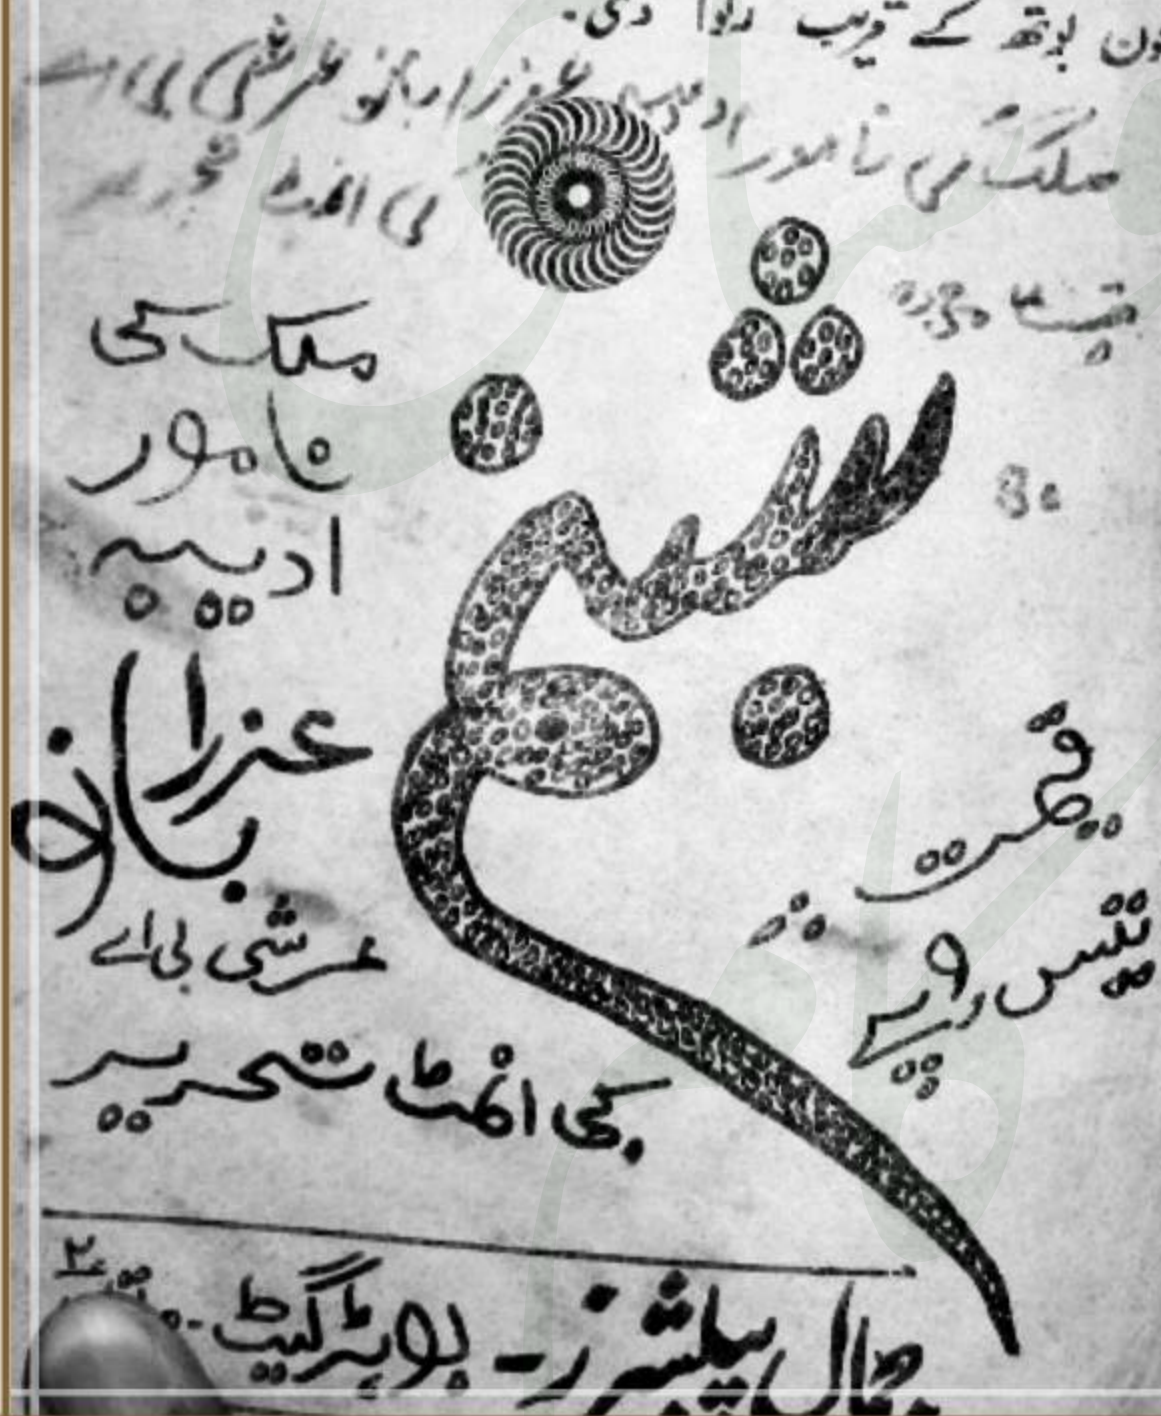 ون بوتھ کے قریب رکوا دی.
ملک کی نامور ادیبہ عذرا بانو عرشی بی اے
کی انمٹ تحریر
شبنم
ملک کی
نامور
ادیبہ
عذرا
بانو
عرشی بی اے
کی انمٹ تحریر
قیمت
تیس روپے
جمال پبلشرز - بوہڑ گیٹ -